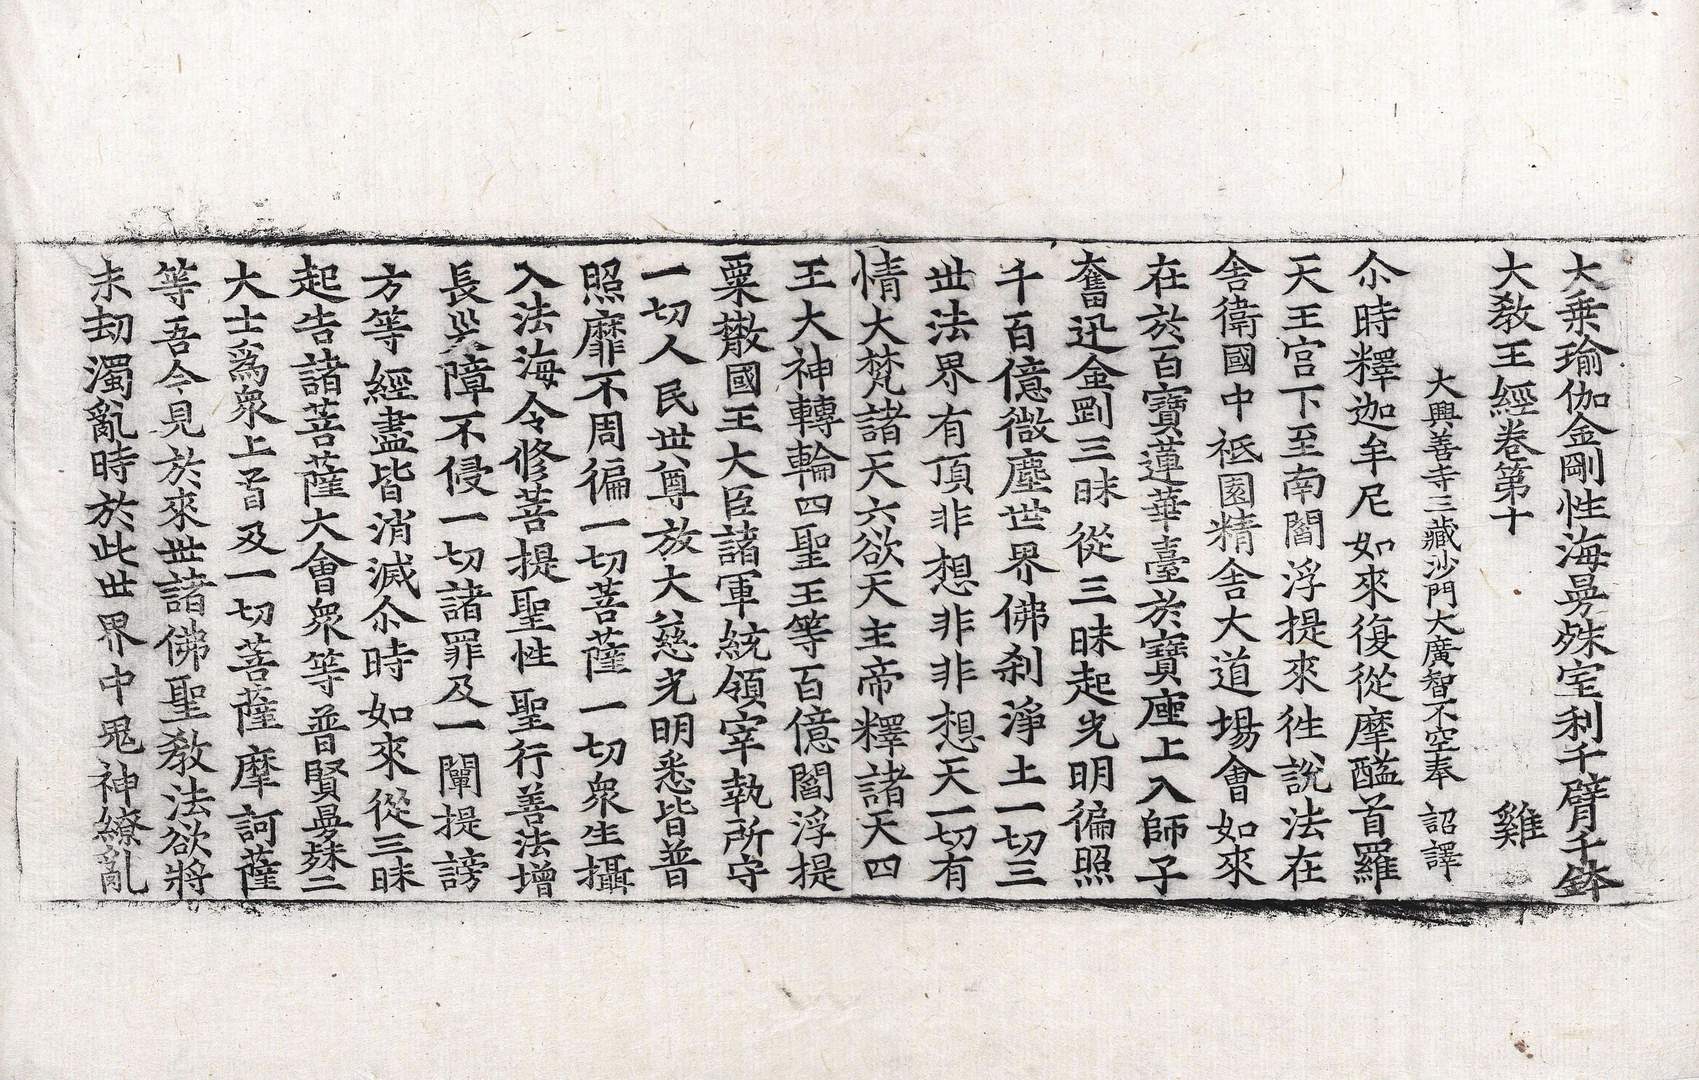 大乗瑜伽金剛性海曼殊室利千臂千鉢
大敎王經卷第十 雞
大興善寺三藏沙門大廣智不空奉 詔譯
尒時釋迦牟尼如來復從摩醯首羅
天王宫下至南閻浮提來徃說法在
舍衛國中祇園精舍大道場會如來
在於百寶蓮華臺於寶座上入師子
奮迅金剛三昧從三昧起光明徧照
千百億微塵世界佛刹淨土一切三
世法界有頂非想非非想天一切有
情大梵諸天六欲天主帝釋諸天四
王大神轉輪四聖王等百億閻浮提
粟散國王大臣諸軍統領宰執所守
一切人民世尊放大慈光明悉皆普
照靡不周徧一切菩薩一切衆生攝
入法海令修菩提聖性聖行善法增
長災障不侵一切諸罪及一闡提謗
方等經盡皆消滅尒時如來從三昧
起告諸菩薩大會衆等普賢曼殊二
大士爲衆上首及一切菩薩摩訶薩
等吾今見於來世諸佛聖敎法欲將
末刧濁亂時於此世界中鬼神繚亂